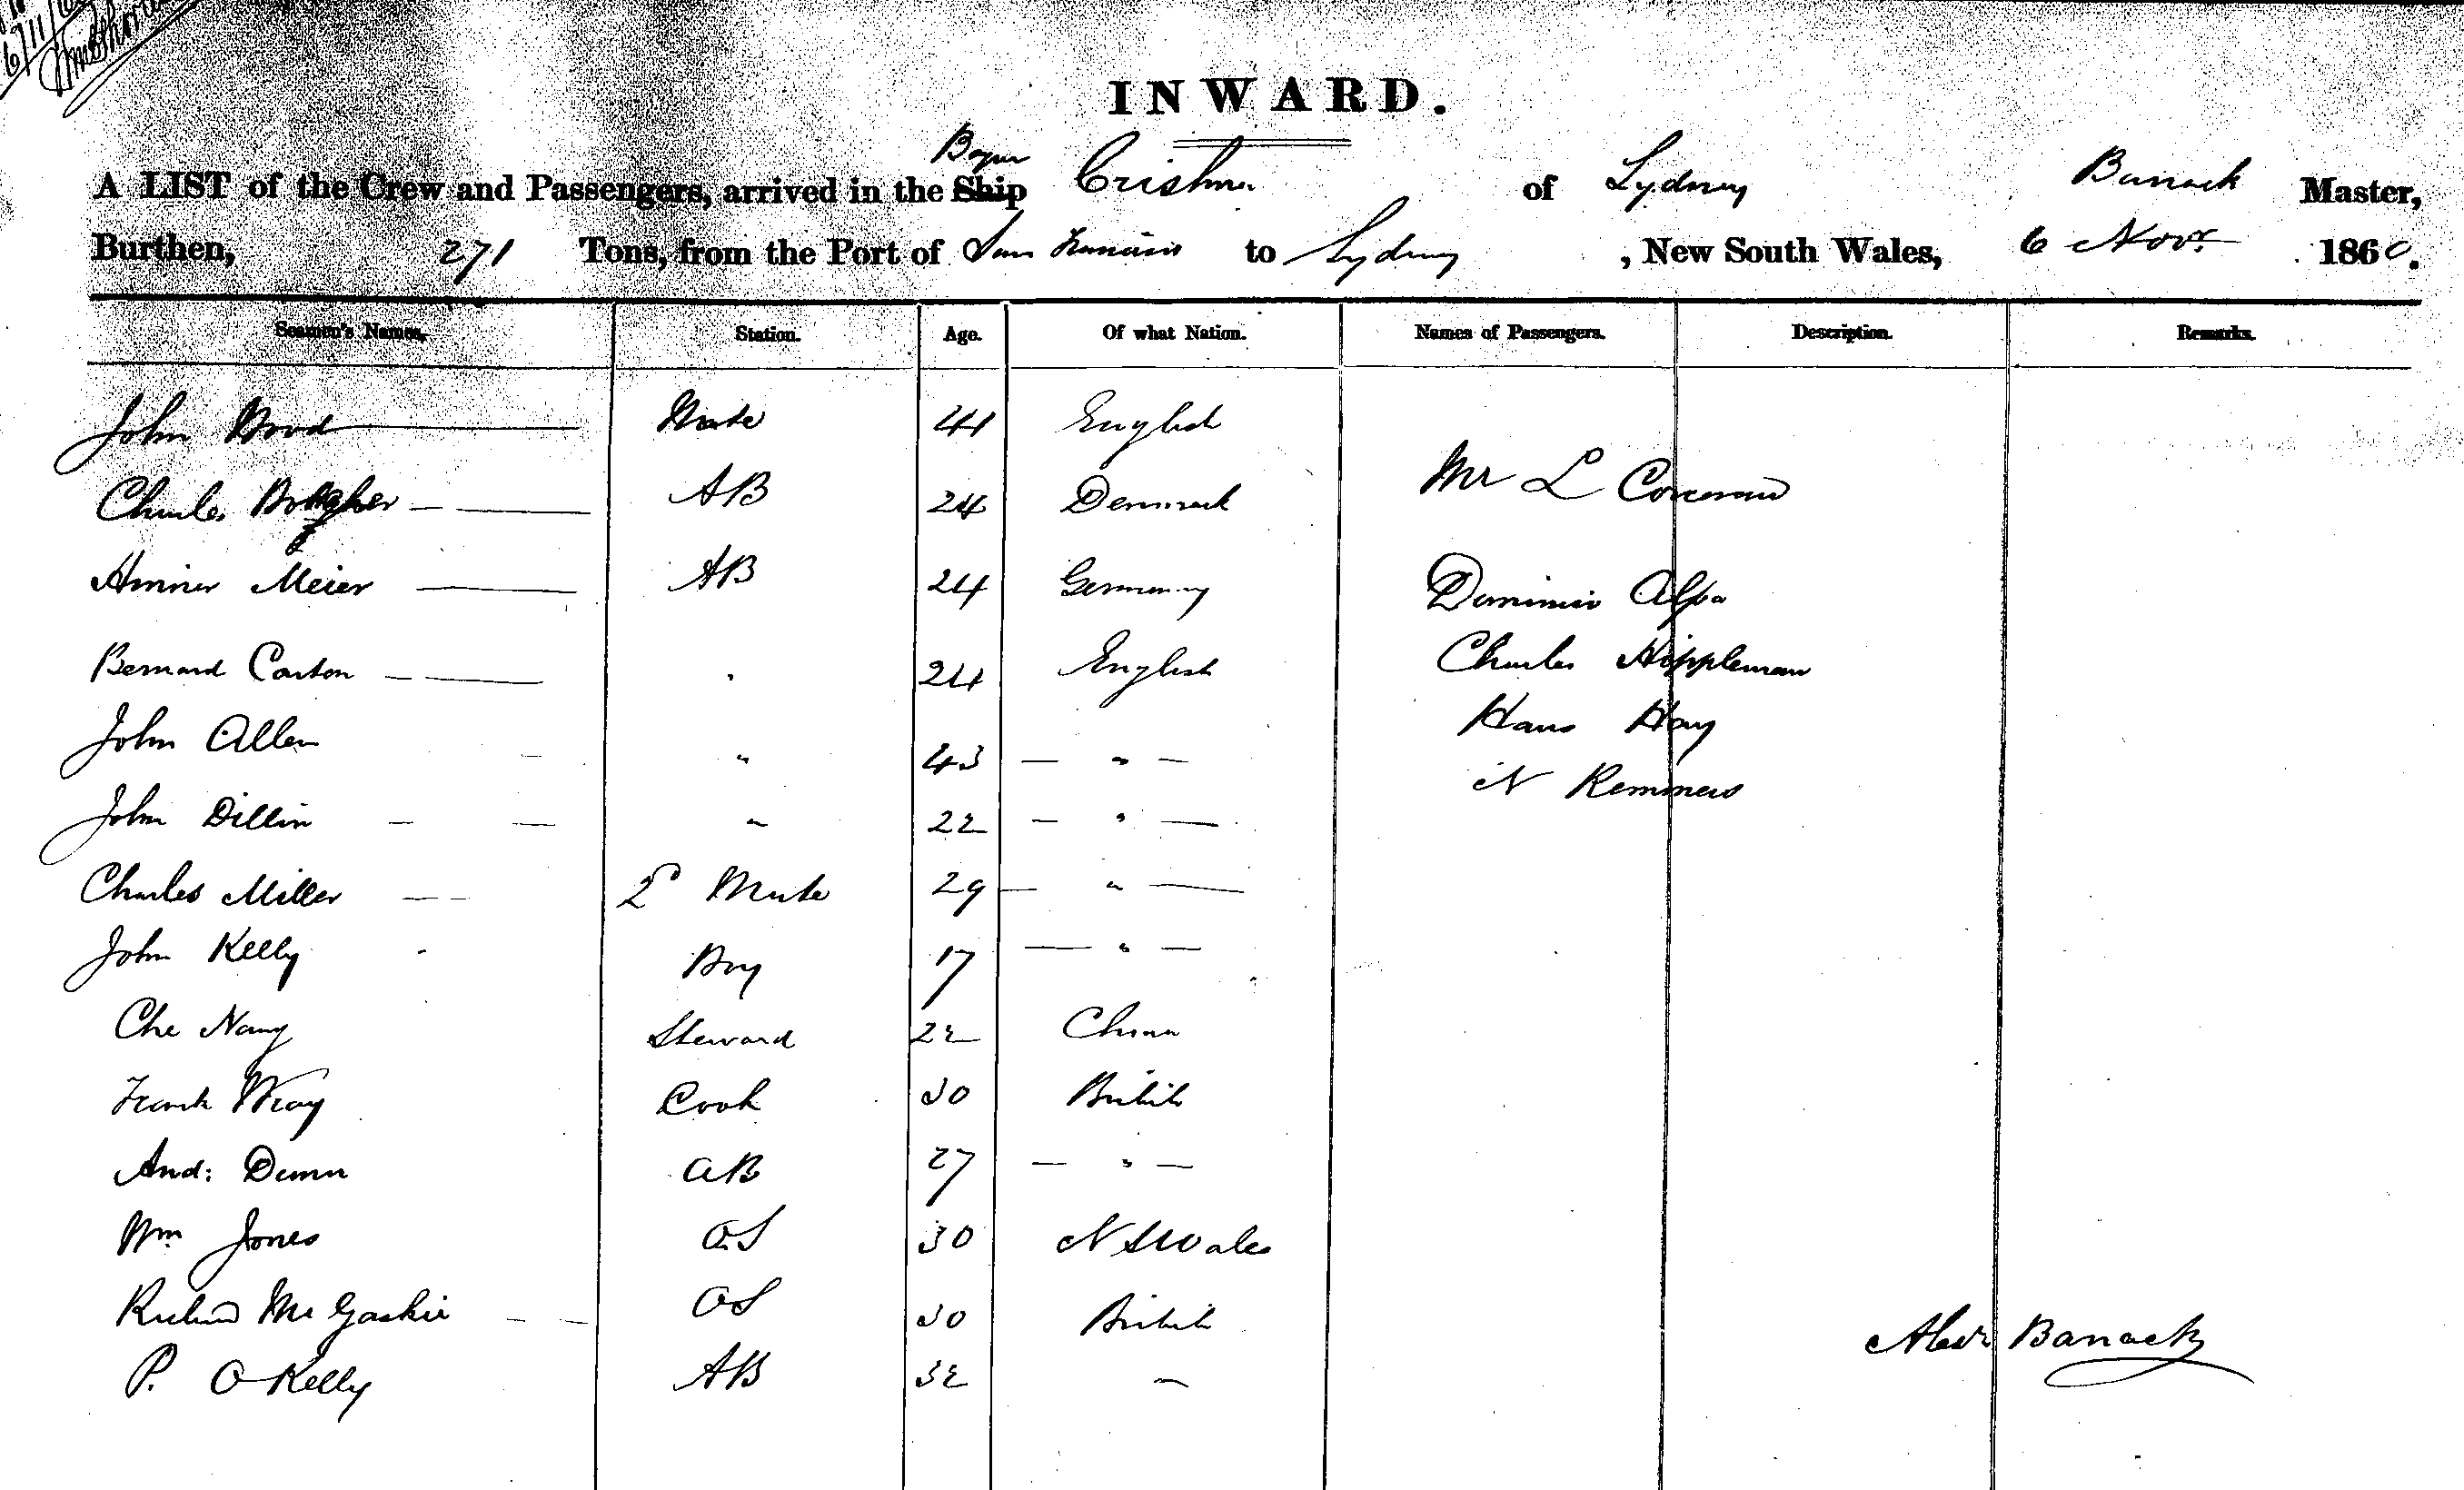 6/11/60
INWARD.
Barque
A LIST of the Crew and Passengers, arrived in the Ship Crishna of Sydney Banack Master,
Burthen, 271 Tons, from the Port of San Francisco to Sydney, New South Wales, 6 Novr 1860.
Seamen's Names, Station. Age. Of what Nation. Names of Passengers. Description. Remarks.
John Wood Mate 41 English
Charles AB 24 Denmark Mr L Corcoran
Meier AB 24 Germany Dominico Alpa
Bernard Carton " 24 English Charles Hippleman
John Allen " 43 — " — Hans Hay
John Dillin " 22 — " — N Remmers
Charles Miller 2d Mate 29 — " —
John Kelly Boy 17 — " —
Che Nang Steward 22 China
Frank Wray Cook 30 British
And: Dunn AB 27 — " —
Wm Jones OS 30 N S Wales
Richard McGaskie OS 30 British
P. O Kelly AB 32 "
Alexr Banack